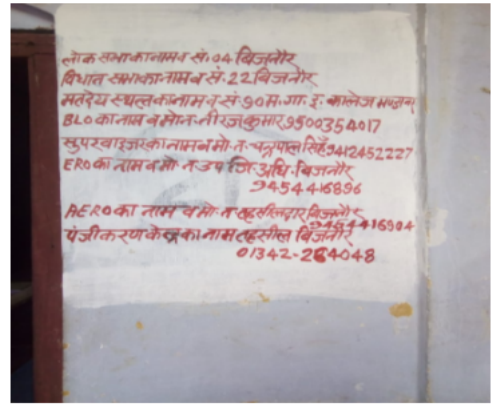 लोक सभा का नाम व सं. 04 बिजनौर
विधान सभा का नाम व सं. 22 बिजनौर
मतदेय स्थल का नाम व सं. 90 म. गा. इ. कालेज
BLO का नाम व मो न. नीरज कुमार 9500354017
सुपरवाइजर का नाम व मो. न. चन्द्रपाल सिंह 9412452227
ERO का नाम व मो. न. उप जि. अधि. बिजनौर
9454416896
AERO का नाम व मो. न. तहसीलदार बिजनौर
9454416904
पंजीकरण केन्द्र का नाम तहसील बिजनौर
01342-264048